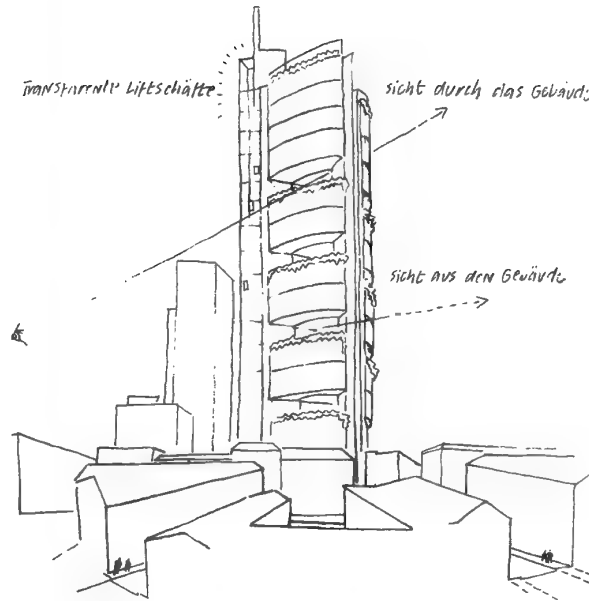 Transparente Liftschäfte
sicht durch das Gebäude
sicht aus den Gebäude